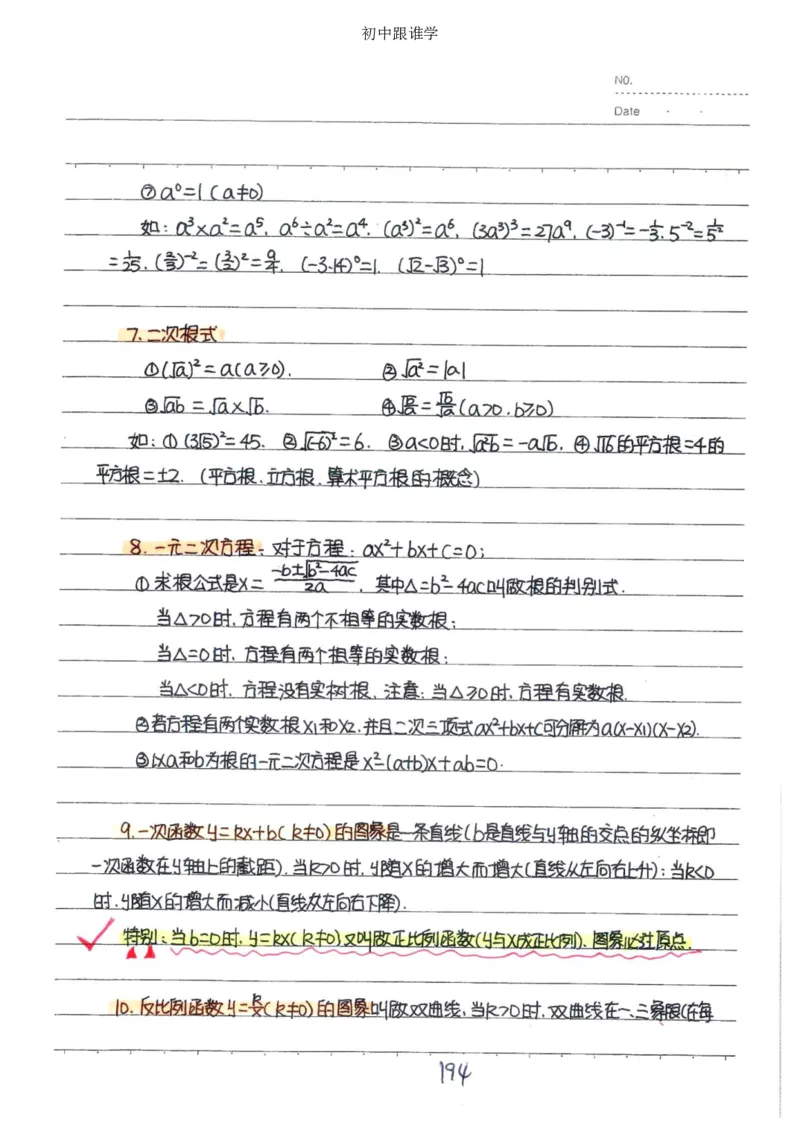 初中跟谁学
NO.
Date
⑦a⁰=1(a≠0)
如:a³×a²=a⁵, a⁶÷a²=a⁴, (a³)²=a⁶, (3a³)³=27a⁹, (-3)⁻¹=-1/3, 5⁻²=1/5²
=1/25, (2/3)⁻²=(3/2)²=9/4, (-3.14)⁰=1, (√2-√3)⁰=1
7.二次根式
①(√a)²=a(a≥0). ②√a²=|a|
③√ab=√a×√b. ④√(b/a)=√b/√a(a>0.b≥0)
如:①(3√5)²=45. ②√(-6)²=6. ③a<0时,√a²b=-a√b. ④√16的平方根=4的
平方根=±2.(平方根、立方根、算术平方根的概念)
8.一元二次方程:对于方程:ax²+bx+c=0;
①求根公式是x=(-b±√b²-4ac)/2a,其中△=b²-4ac叫做根的判别式.
当△>0时,方程有两个不相等的实数根;
当△=0时,方程有两个相等的实数根;
当△<0时,方程没有实树根.注意:当△≥0时,方程有实数根.
②若方程有两个实数根x1和x2,并且二次三项式ax²+bx+c可分解为a(x-x1)(x-x2).
③以a和b为根的一元二次方程是x²-(a+b)x+ab=0.
9.一次函数y=kx+b(k≠0)的图象是一条直线(b是直线与y轴的交点的纵坐标即
一次函数在y轴上的截距).当k>0时,y随x的增大而增大(直线从左向右上升);当k<0
时.y随x的增大而减小(直线从左向右下降).
特别:当b=0时,y=kx(k≠0)又叫做正比例函数(y与x成正比例),图象必过原点.
10.反比例函数y=k/x(k≠0)的图象叫做双曲线,当k>0时,双曲线在一、三象限(在每
194